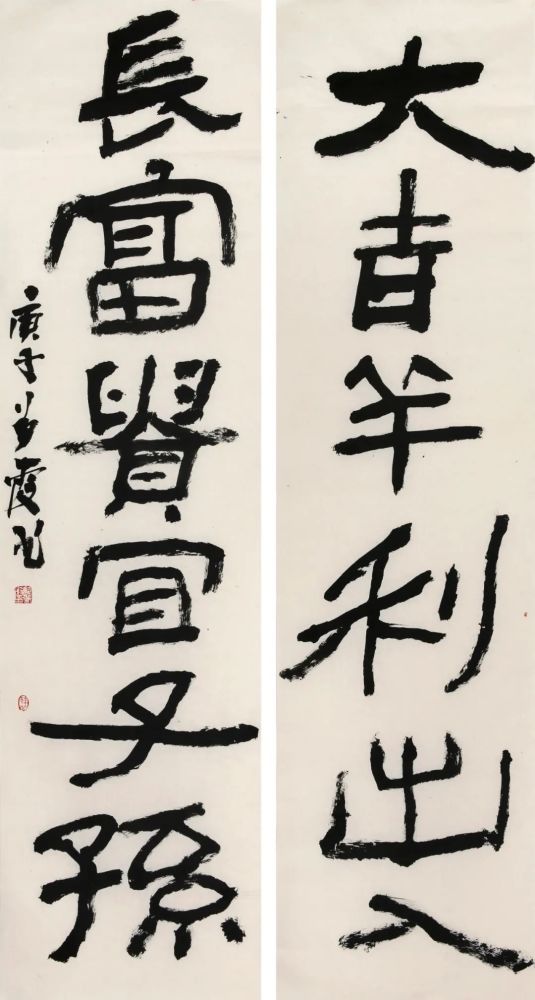 大吉羊利出入
長富貴宜子孫
庚子